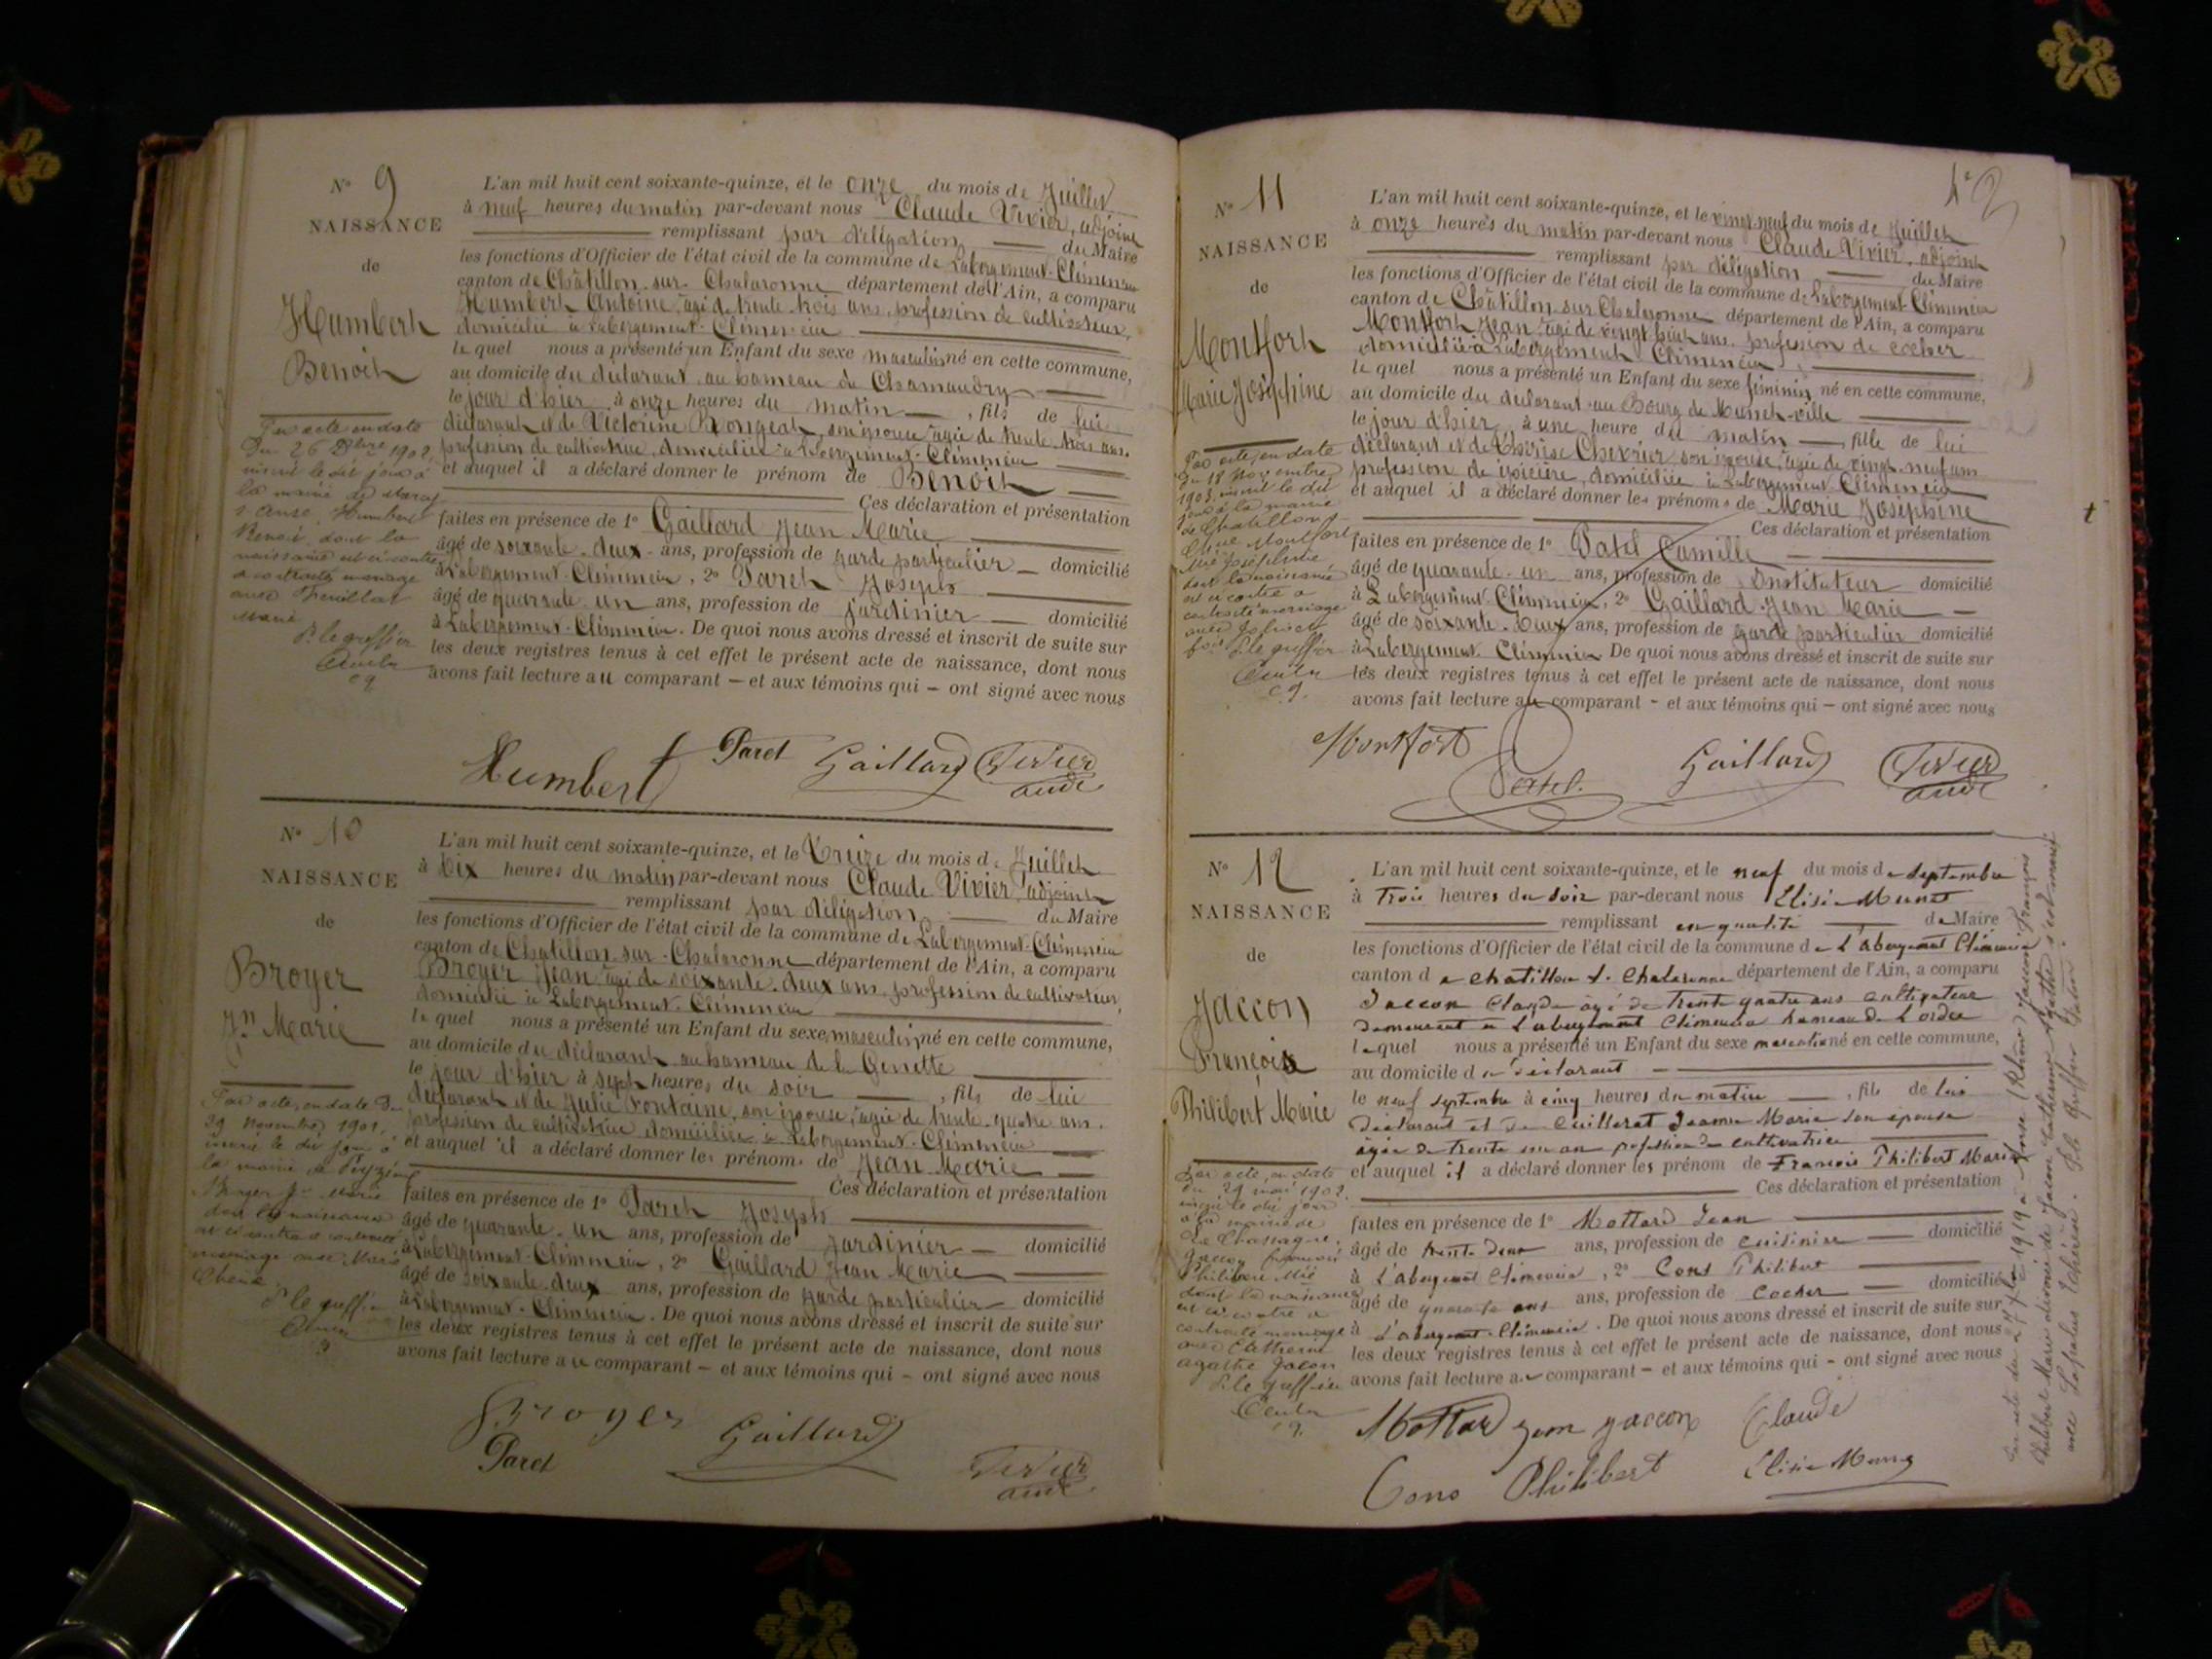 N° 9
NAISSANCE
de
Humbert
Benoit
L'an mil huit cent soixante-quinze, et le onze du mois de Juillet
à neuf heures du matin par-devant nous Claude Vivier, adjoint
remplissant par délégation du Maire
les fonctions d'Officier de l'état civil de la commune de Labergement-Clémencia
canton de Châtillon-sur-Chalaronne département de l'Ain, a comparu
Humbert Antoine, âgé de trente trois ans, profession de cultivateur,
domicilié à Labergement-Clémencia
lequel nous a présenté un Enfant du sexe masculin né en cette commune,
au domicile du déclarant au hameau de
le jour d'hier à onze heures du matin, fils de lui
déclarant et de Victorine son épouse, âgée de trente trois ans,
profession de cultivatrice, domiciliée à Labergement-Clémencia
et auquel il a déclaré donner le prénom de Benoit
Ces déclaration et présentation
faites en présence de 1° Gaillard Jean Marie
âgé de soixante-deux ans, profession de garde particulier domicilié
à Labergement-Clémencia, 2° Paret Joseph
âgé de quarante-un ans, profession de jardinier domicilié
à Labergement-Clémencia. De quoi nous avons dressé et inscrit de suite sur
les deux registres tenus à cet effet le présent acte de naissance, dont nous
avons fait lecture au comparant – et aux témoins qui – ont signé avec nous
Par acte en date
du 26 Dbre 1902,
inscrit le dit jour à
la mairie de
Humbert
Benoit dont la
naissance est ci-contre
a contracté mariage
avec
Marie
P. le greffier
Humbert Paret Gaillard Vivier
N° 10
NAISSANCE
de
Broyer
Jn Marie
L'an mil huit cent soixante-quinze, et le treize du mois de Juillet
à dix heures du matin par-devant nous Claude Vivier, adjoint
remplissant par délégation du Maire
les fonctions d'Officier de l'état civil de la commune de Labergement-Clémencia
canton de Châtillon-sur-Chalaronne département de l'Ain, a comparu
Broyer Jean, âgé de soixante-deux ans, profession de cultivateur,
domicilié à Labergement-Clémencia
lequel nous a présenté un Enfant du sexe masculin né en cette commune,
au domicile du déclarant au hameau de la Genette
le jour d'hier à sept heures du soir, fils de lui
déclarant et de Julie Fontaine, son épouse, âgée de trente-quatre ans,
profession de cultivatrice domiciliée à Labergement-Clémencia
et auquel il a déclaré donner les prénoms de Jean Marie
Ces déclaration et présentation
faites en présence de 1° Paret Joseph
âgé de quarante-un ans, profession de jardinier domicilié
à Labergement-Clémencia, 2° Gaillard Jean Marie
âgé de soixante-deux ans, profession de garde particulier domicilié
à Labergement-Clémencia. De quoi nous avons dressé et inscrit de suite sur
les deux registres tenus à cet effet le présent acte de naissance, dont nous
avons fait lecture au comparant – et aux témoins qui – ont signé avec nous
Par acte, en date du
29 novembre 1901,
inscrit le dit jour à
la mairie de
Broyer Jn Marie
dont la naissance
est ci-contre a contracté
mariage avec
P. le greffier
Broyer Gaillard
Paret Vivier
N° 11
NAISSANCE
de
Montfort
Marie Joséphine
L'an mil huit cent soixante-quinze, et le vingt-neuf du mois de Juillet
à onze heures du matin par-devant nous Claude Vivier, adjoint
remplissant par délégation du Maire
les fonctions d'Officier de l'état civil de la commune de Labergement-Clémencia
canton de Châtillon sur Chalaronne département de l'Ain, a comparu
Montfort Jean, âgé de vingt-huit ans, profession de cocher
domicilié à Labergement Clémencia,
lequel nous a présenté un Enfant du sexe féminin né en cette commune,
au domicile du déclarant au Bourg de Munet-ville
le jour d'hier, à une heure du matin, fille de lui
déclarant et de Thérèse Chevrier son épouse, âgée de vingt-neuf ans
profession de épicière, domiciliée à Labergement Clémencia
et auquel il a déclaré donner les prénoms de Marie Joséphine
Ces déclaration et présentation
faites en présence de 1° Patel Camille
âgé de quarante-un ans, profession de Instituteur domicilié
à Labergement-Clémencia, 2° Gaillard Jean Marie
âgé de soixante-deux ans, profession de garde particulier domicilié
à Labergement Clémencia De quoi nous avons dressé et inscrit de suite sur
les deux registres tenus à cet effet le présent acte de naissance, dont nous
avons fait lecture au comparant - et aux témoins qui – ont signé avec nous
Par acte, en date
du 18 Novembre
1903, inscrit le dit
jour à la mairie
de Chatillon s
Montfort
Mie Joséphine
dont la naissance
est ci contre a
contracté mariage
avec
P. le greffier
Montfort Patel Gaillard Vivier
N° 12
NAISSANCE
de
Jaccon
François
Philibert Marie
L'an mil huit cent soixante-quinze, et le neuf du mois de septembre
à trois heures du soir par-devant nous Elisée Munet
remplissant en qualité de Maire
les fonctions d'Officier de l'état civil de la commune de L'abergement Clémencia
canton de Chatillon s. Chalaronne département de l'Ain, a comparu
Jaccon Claude âgé de trente quatre ans cultivateur
demeurant à L'abergement Clémencia hameau de
lequel nous a présenté un Enfant du sexe masculin né en cette commune,
au domicile du déclarant
le neuf septembre à cinq heures du matin, fils de lui
déclarant et de Cuillerat Jeanne Marie son épouse
âgée de trente un an profession de cultivatrice
et auquel il a déclaré donner les prénom de François Philibert Marie
Ces déclaration et présentation
faites en présence de 1° Mottard Jean
âgé de trente deux ans, profession de cuisinier domicilié
à L'abergement Clémencia, 2° Cons Philibert
âgé de quarante ans ans, profession de Cocher domicilié
à L'abergement-Clémencia. De quoi nous avons dressé et inscrit de suite sur
les deux registres tenus à cet effet le présent acte de naissance, dont nous
avons fait lecture au comparant – et aux témoins qui – ont signé avec nous
Par acte, en date
du 29 mai 1902,
inscrit le dit jour
à la mairie de
La Chassagne,
Jaccon François
Philibert Mie
dont la naissance
est ci contre a
contracté mariage
avec Catherine
Agathe Jacon
P. le greffier
Mottard Jean Jaccon Claude
Cons Philibert Elisée Munet
1919 à Anse (Rhône) Jaccon François
Philibert Marie divorcé de Jacon Catherine Agathe s'est marié
avec Thérèse. P. le Greffier